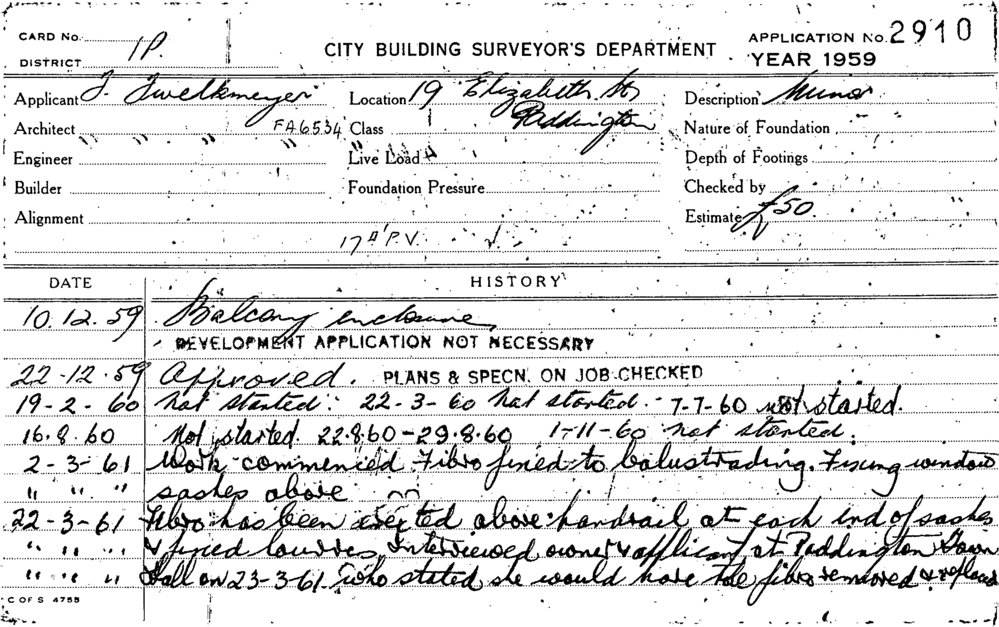 CARD No. 1P.
DISTRICT
CITY BUILDING SURVEYOR'S DEPARTMENT
APPLICATION No. 2910
YEAR 1959
Applicant J. Zwelkmeyer Location 19 Elizabeth St Description Minor
Paddington
Architect " " " FA6534 Class Nature of Foundation
Engineer Live Load Depth of Footings
Builder Foundation Pressure Checked by
Alignment Estimate £50.
P.V.
DATE HISTORY
10.12.59 Balcony enclosure
DEVELOPMENT APPLICATION NOT NECESSARY
22-12-59 Approved. PLANS & SPECN. ON JOB CHECKED
19-2-60 Not started. 22-3-60 Not started. 7-7-60 not started.
16.8.60 Not started. 22.8.60-29.8.60 1-11-60 not started.
2-3-61 Work commenced Fibro fixed to balustrading. Fixing window
" " " sashes above
22-3-61 Fibro has been erected above handrail at each end of sashes
" " " & fixed louvres, Interviewed owner & applicant at Paddington Town
" " " Hall on 23-3-61. who stated she would have the fibro removed &
C OF S 4755